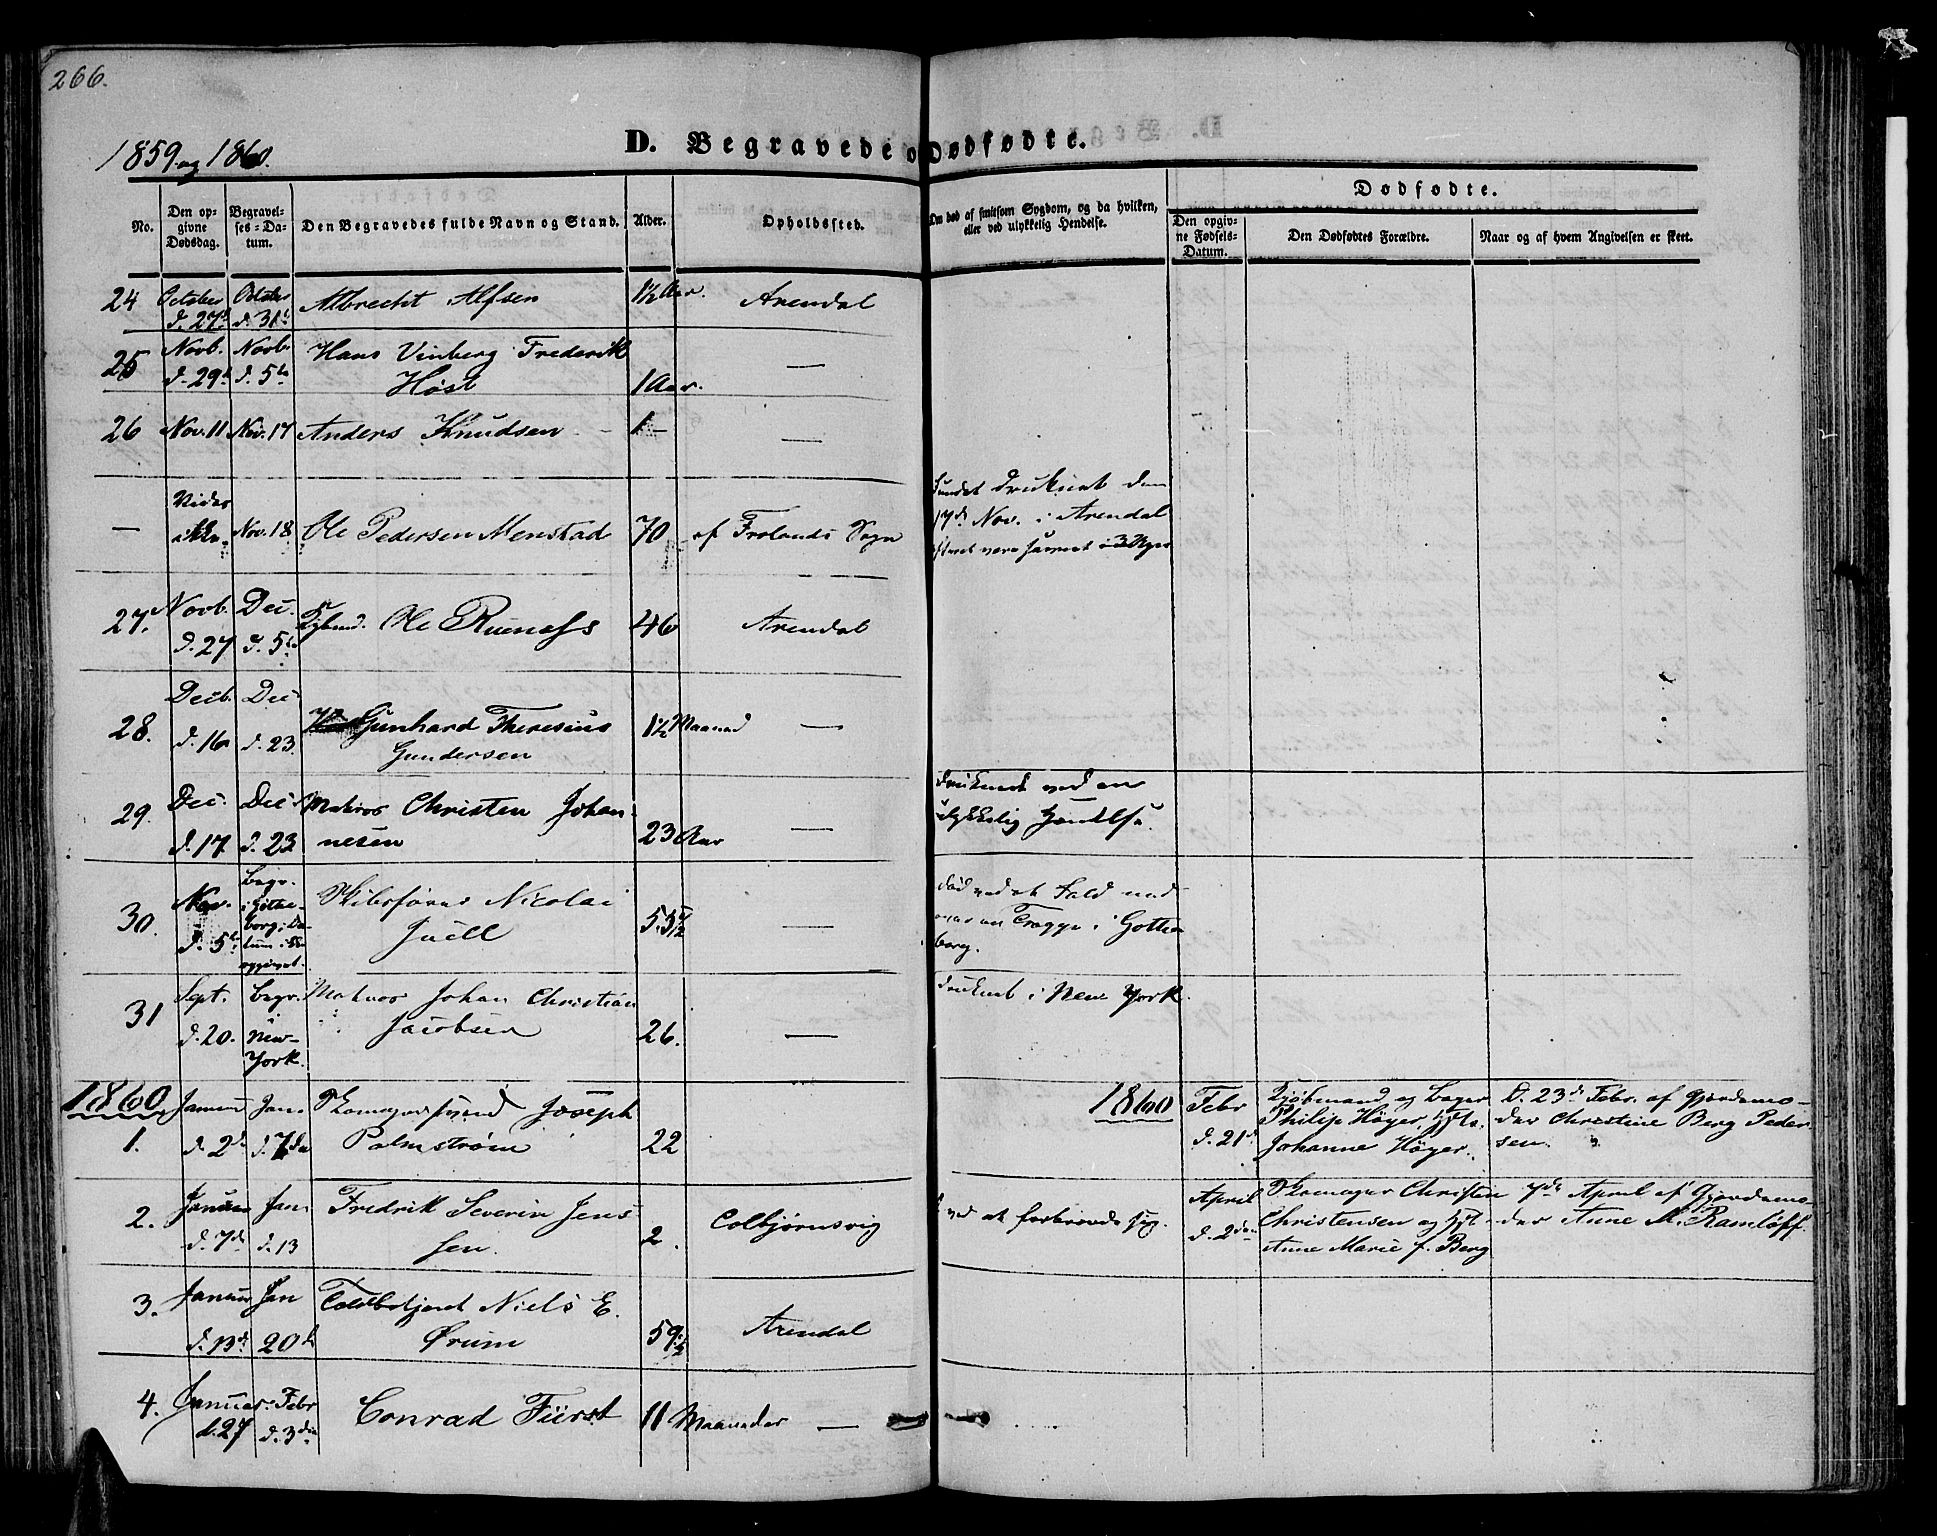 266.
1859 og 1860.
D. Begravede o
Dødfødte.
No.
Den opgivne Dødsdag.
Begravelses-Datum.
Den Begravedes fulde Navn og Stand.
Alder.
Opholdssted.
Om død af smitsom Sygdom, og da hvilken, eller ved ulykkelig Hendelse.
Dødfødte.
Den opgivne Fødsels-Datum.
Den Dødfødtes Forældre.
Naar og af hvem Angivelsen er skeet.
24 October d. 27de October d. 31te Albrecht Alfsen 1½ Aar. Arendal
25 Novb. d. 29de Novb. d. 5te Hans Vinberg Frederik
Høst 1 Aar. —
26 Nov. 11 Nov. 17 Anders Knudsen 1 — —
— Vides ikke Nov. 18 Ole Pedersen Menstad 70 af Frolands Sogn
fundet druknet den
17de Nov. i Arendal
27. Novb. d. 27 Dec. d. 5te Kjøbmd. Ole Ruenæss 46 Arendal
28. Decb. d. 16 Dec d. 23 Gunhard Theresius
Gundersen 1½ Maaned —
29. Dec. d. 17. Dec d. 23 Matros Christen Johan-
nesen 23 Aar —
druknet ved en
ulykkelig Hændelse.
30. Nov. d. 5te Begr. i Gothe-borg, Datum i Ei opgivet. Skibsfører Nicolai
Juell 53½ —
død ved et Fald ned
i Gothen
borg.
31 Sept. d. 20. Begr. i New-York. Matros Johan Christian
Jacobsen 26. —
druknet i New York.
1860.
1. Januar d. 2de Jan. d. 7de Skomagersvend Joseph
Palmstrøm 22
1860 Febr d. 21de Kjøbmand og Bager
Philip Høyer, Hst.
Johanne Høyer.
D. 23de Febr. af Gjordemo-
der Christine Berg Peder
sen.
2. Januar d. 7de Jan. d. 13 Fredrik Severin Jens
sen. 2. Colbjørnsvig
ved at forbrænde sig.
April d. 2den Skomager Christen
Christensen og Hst.
Anne Marie f. Berg
7de April af Gjordemo-
der Anne M. Ramløff.
3. Januar d. 13de Jan 20de Toldbetjent Niels E.
Ørum 59½ Arendal
4. Januar d. 27 Febr d. 3die Conrad Fürst 11 Maaneder —